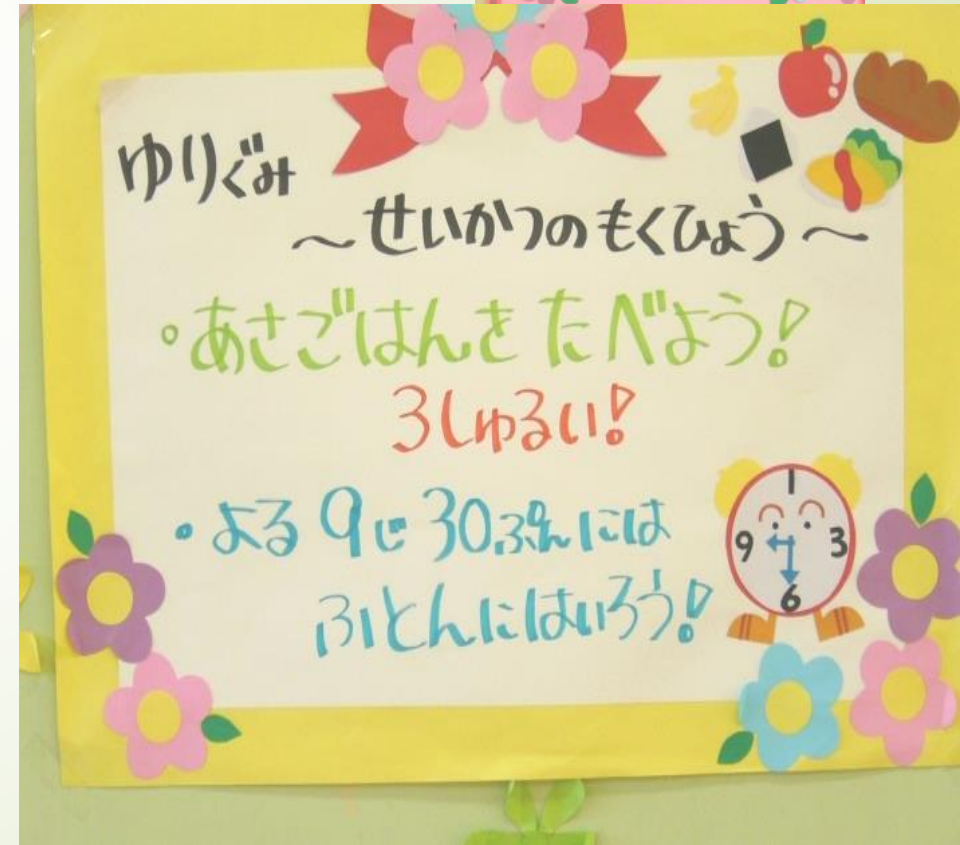 ゆりぐみ
～せいかつのもくひょう～
・あさごはんを たべよう!
3しゅるい!
・よる 9じ 30ぷんには
ふとんにはいろう!
1
9 3
6